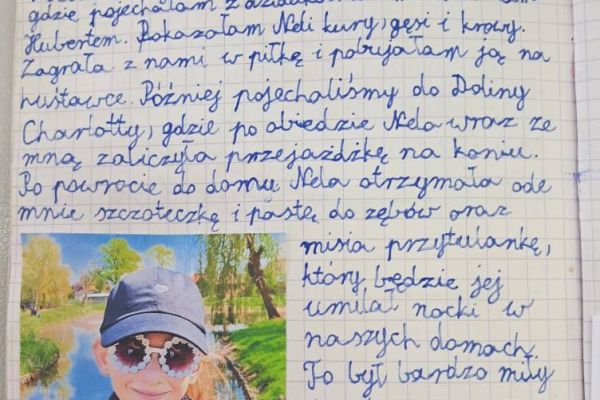 gdzie pojechałam z dziadkiem
Hubertem. Pokazałam Neli kury, gęsi i krowy.
Zagrała z nami w piłkę i pobujałam ją na
huśtawce. Później pojechaliśmy do Doliny
Charlotty, gdzie po obiedzie Nela wraz ze
mną zaliczyła przejażdżkę na koniu.
Po powrocie do domu Nela otrzymała ode
mnie szczoteczkę i pastę do zębów oraz
misia przytulankę,
który będzie jej
umilał nocki w
naszych domach.
To był bardzo miły